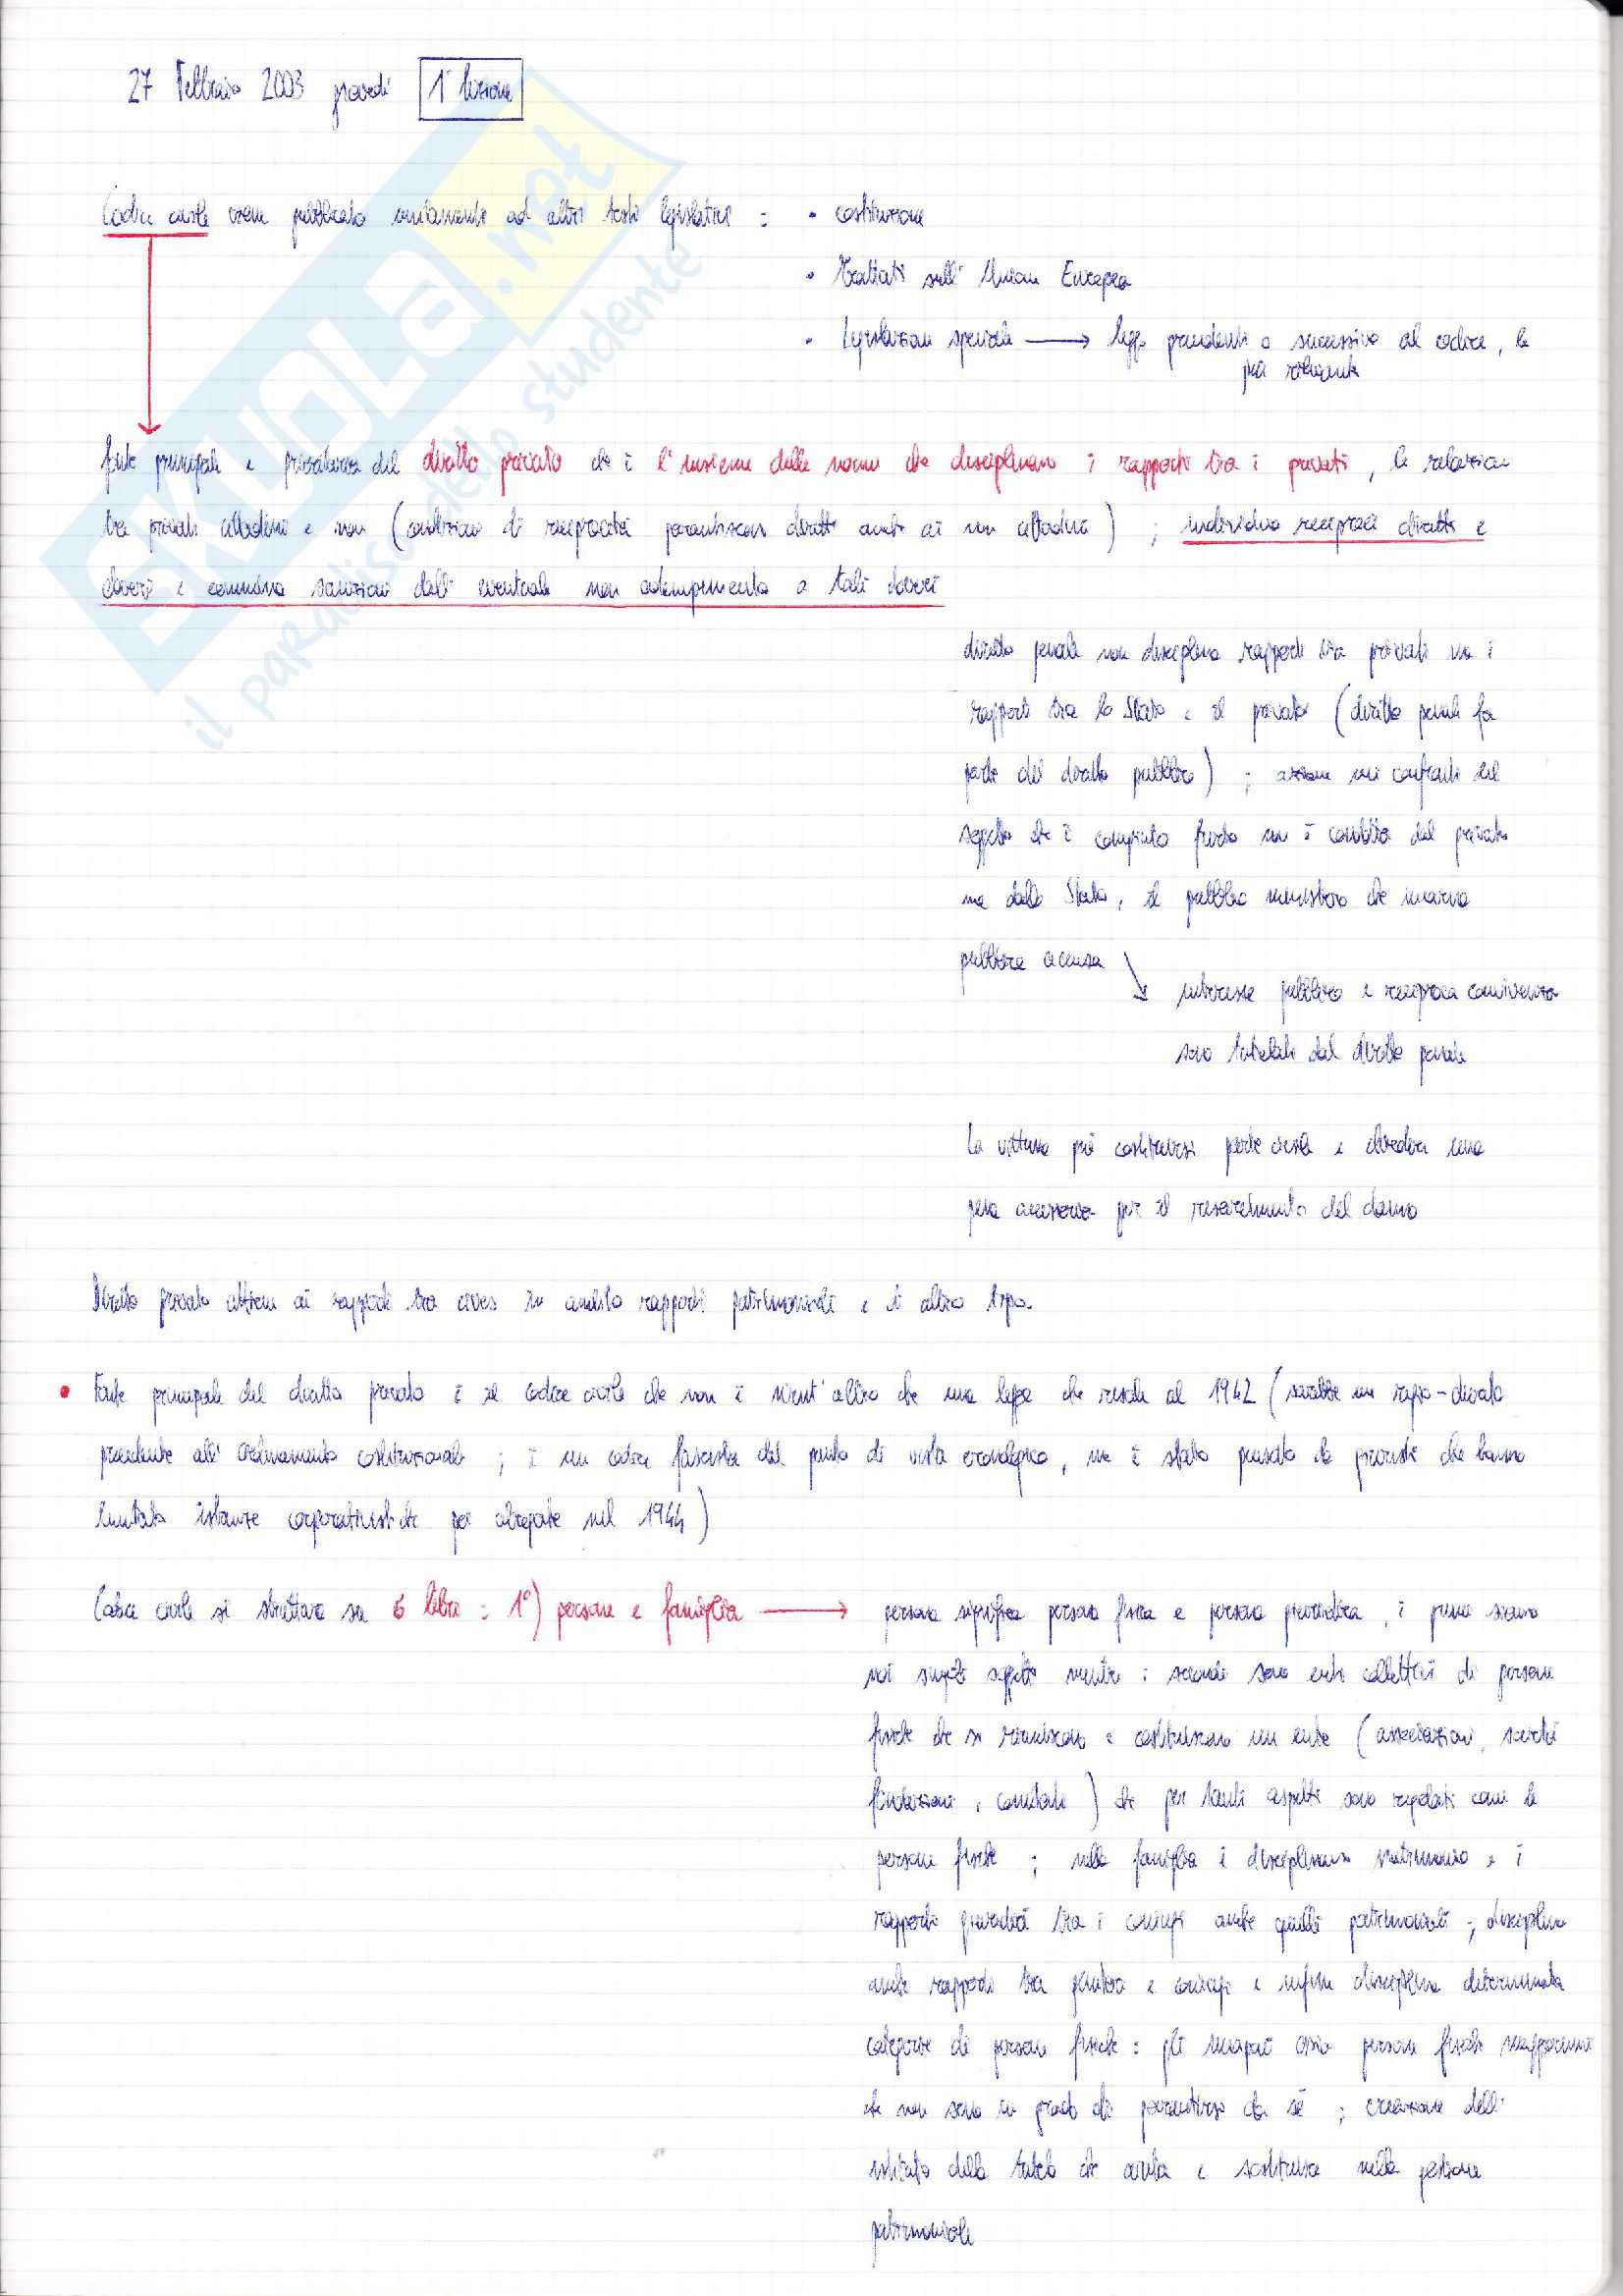 27 Febbraio 2003 giovedì 1ª lezione
Codice civile viene pubblicato unitamente ad altri testi legislativi : • costituzione
• Trattati sull'Unione Europea
• Legislazione speciale → leggi precedenti o successive al codice, le
più rilevanti
fonte principale e privilegiata del diritto privato che è l'insieme delle norme che disciplinano i rapporti tra i privati, le relazioni
tra privati cittadini e non (condizione di reciprocità garantiscono diritti anche ai non cittadini) ; individua reciproci diritti e
doveri e commina sanzioni dall'eventuale non adempimento a tali doveri
diritto penale non disciplina rapporti tra privati ma i
rapporti tra lo Stato e il privato (diritto penale fa
parte del diritto pubblico) ; azione nei confronti del
soggetto che è compiuto furto non è condotta dal privato
ma dallo Stato, il pubblico ministero che incarna
pubblica accusa
interesse pubblico e reciproca convivenza
sono tutelati dal diritto penale
La vittima può costituirsi parte civile e chiedere una
pena accessoria per il risarcimento del danno
Diritto privato attiene ai rapporti tra cives in ambito rapporti patrimoniali e di altro tipo.
• Fonte principale del diritto privato è il codice civile che non è nient'altro che una legge che risale al 1942 (sarebbe un regio-decreto
precedente all'ordinamento costituzionale ; è un codice fascista dal punto di vista cronologico, ma è stato pensato da giuristi che hanno
limitato istanze corporativistiche poi abrogate nel 1944)
Codice civile si struttura su 6 libri : 1°) persone e famiglia → persona significa persona fisica e persona giuridica, i primi siamo
noi singoli soggetti mentre i secondi sono enti collettivi di persone
fisiche che si riuniscono e costituiscono un ente (associazioni, società
fondazioni, comitati) che per tanti aspetti sono regolati come le
persone fisiche ; nella famiglia è disciplinato matrimonio e i
rapporti giuridici tra i coniugi anche quelli patrimoniali ; disciplina
anche rapporti tra genitori e coniugi e infine disciplina determinate
categorie di persone fisiche : gli incapaci ossia persone fisiche
che non sono in grado di da sé ; creazione dell'
istituto della tutela che aiuta e sostituisce nella gestione
patrimoniale
SKUOLA.net
il paradiso dello studente